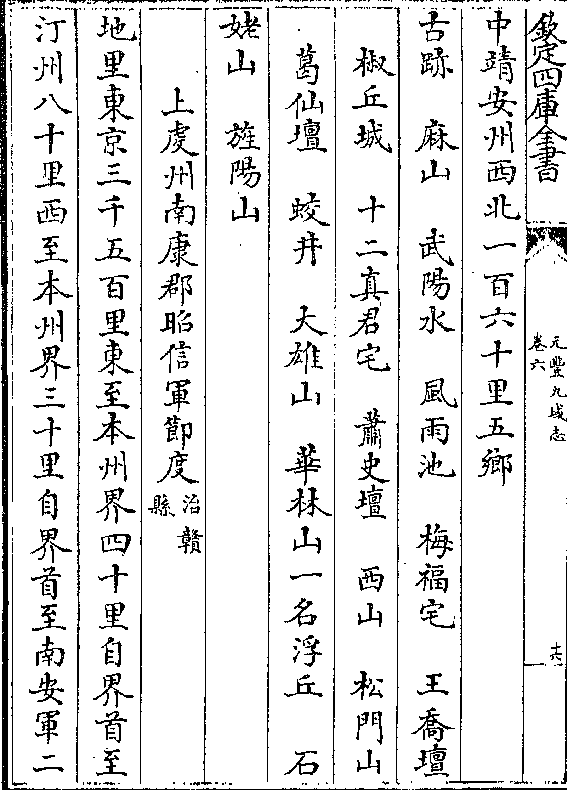 欽定四庫全書
元豐九域志
卷六
十六
中靖安州西北一百六十里五鄉
古跡 麻山 武陽水 風雨池 梅福宅 王喬壇
椒丘城 十二真君宅 蕭史壇 西山 松門山
葛仙壇 蛟井 大雄山 華林山一名浮丘 石
姥山 旌陽山
上虔州南康郡昭信軍節度治贛縣
地里東京三千五百里東至本州界四十里自界首至
汀州八十里西至本州界三十里自界首至南安軍二